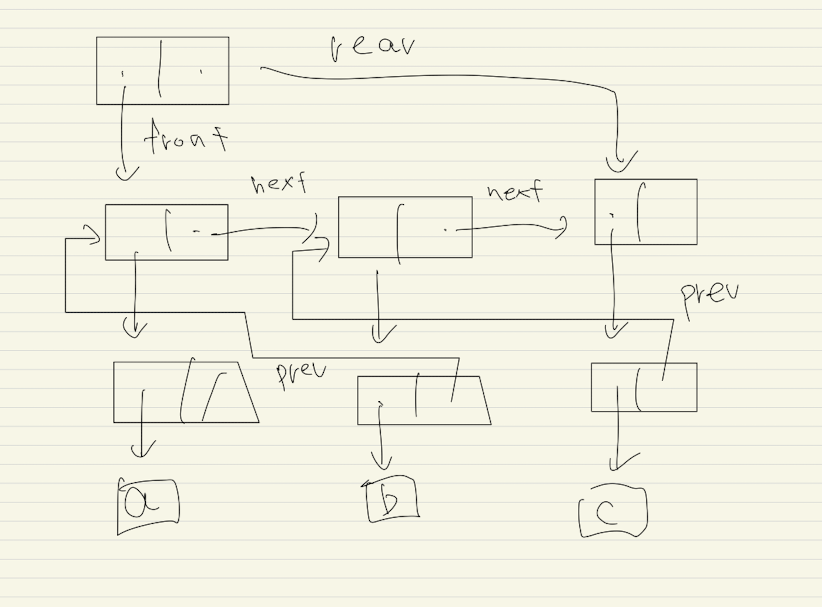 rear
front
next
next
prev
prev
a
b
c